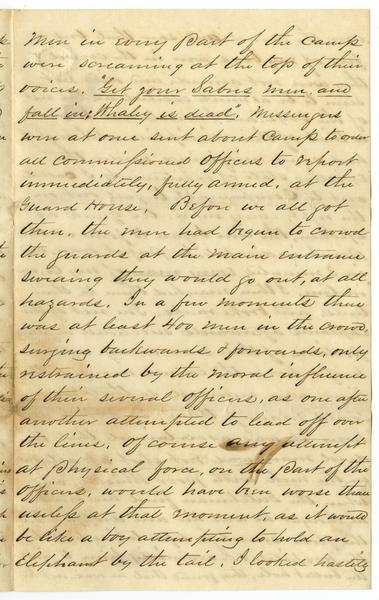 Men in every part of the Camp
were screaming at the top of their
voices, "Get your Sabres men, and
fall in; Whaley is dead". Messengers
were at once sent about Camp to order
all commissioned officers to report
immediately, fully armed, at the
Guard House. Before we all got
there, the men had begun to crowd
the guards at the main entrance
swearing they would go out, at all
hazards. In a few moments there
was at least 400 men in the crowd,
surging backwards & forwards, only
restrained by the moral influence
of their several officers, as one after
another attempted to lead off over
the lines. Of course any attempt
at physical force, on the part of the
officers, would have been worse than
useless at that moment, as it would
be like a boy attempting to hold an
Elephant by the tail. I looked hastily